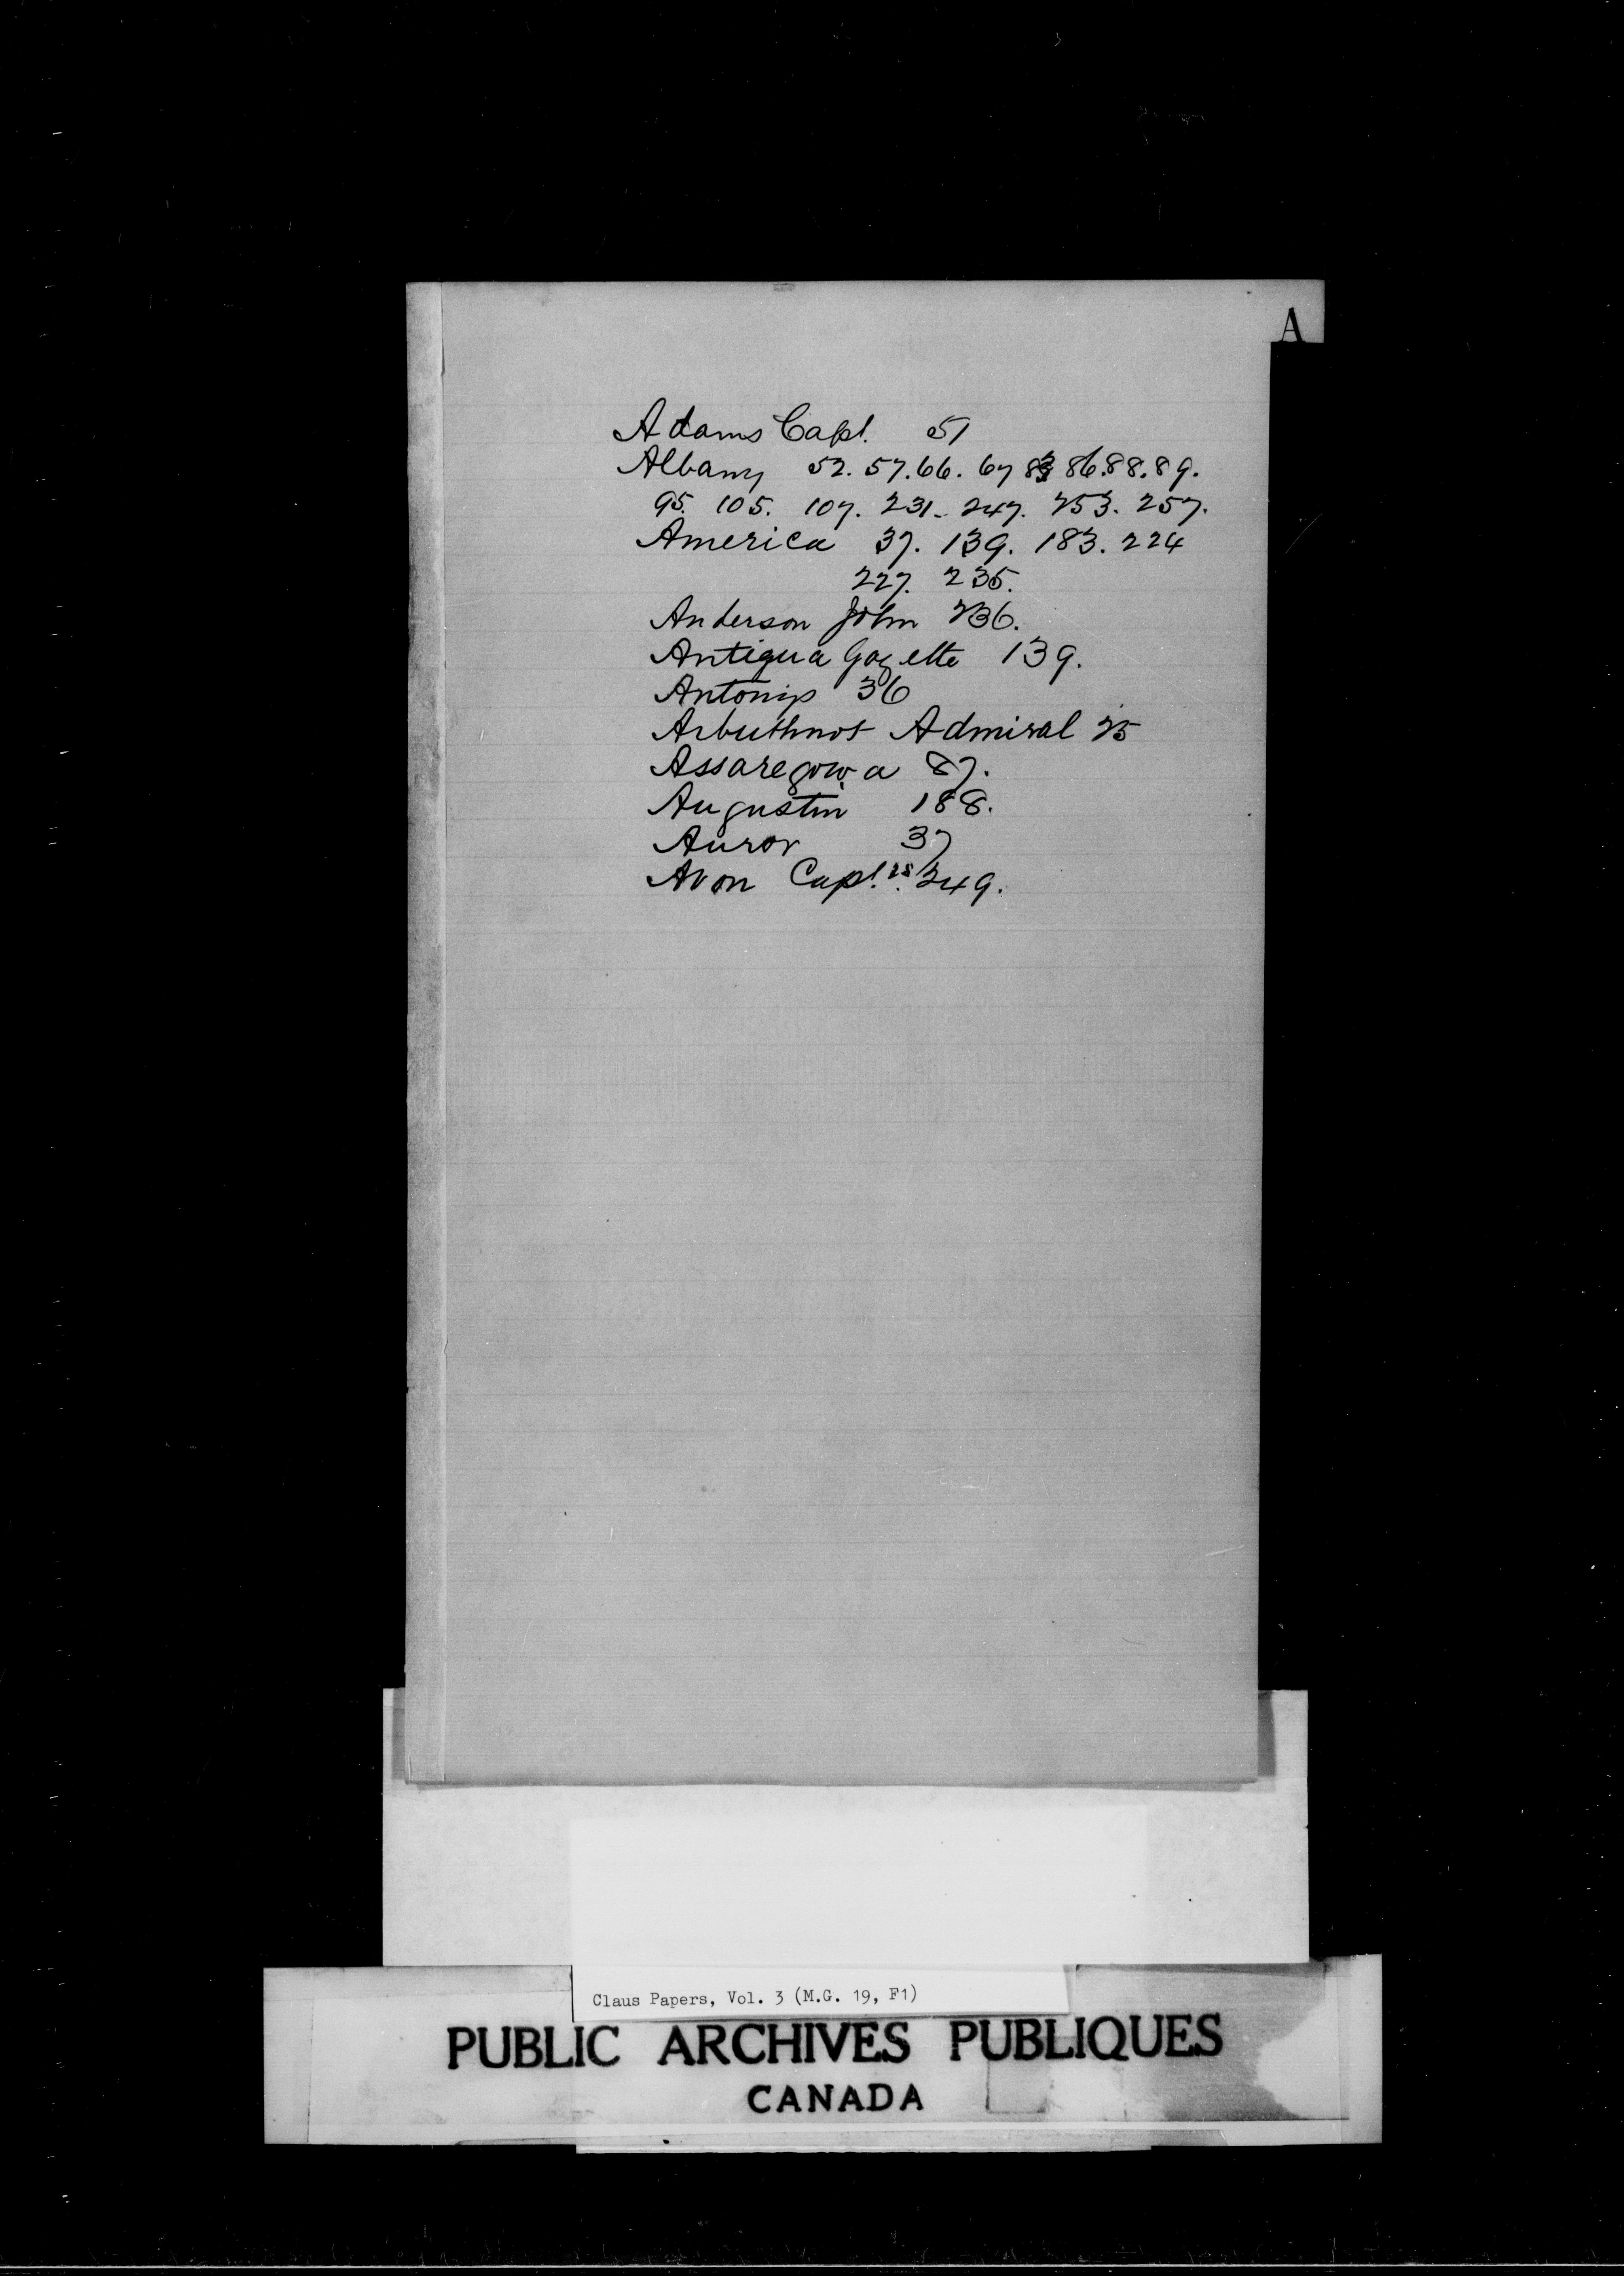 A
Adams Capt. 51
Albany 52. 57. 66. 67 83 86. 88. 89.
95. 105. 107. 231. 247. 253. 257.
America 37. 139. 183. 224
227. 235.
Anderson John 236.
Antigua Gazette 139.
Antonip 36
Arbuthnot Admiral 25
Assaregowa 87.
Augustin 188.
Auror 37
Avon Capt. 249.
Claus Papers, Vol. 3 (M.G. 19, F1)
PUBLIC ARCHIVES PUBLIQUES
CANADA